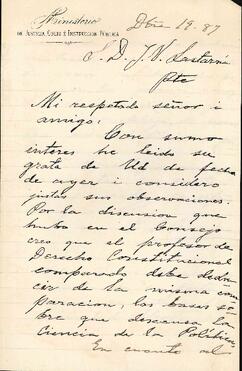 Ministerio
DE JUSTICIA, CULTO E INSTRUCCION PÚBLICA
Dbre 19. 87
S. D. J. V. Lastarria
Pte
Mi respetado señor i
amigo:
Con sumo
interes he leido su
grata de Ud de fecha
de ayer i considero
justas sus observaciones.
Por la discusion que
hubo en el Consejo
creo que el profesor de
Derecho Constitucional
comparado debe dedu
cir de la misma com
paracion, las bases so
bre que descansa la
Ciencia de la Política.
En cuanto al